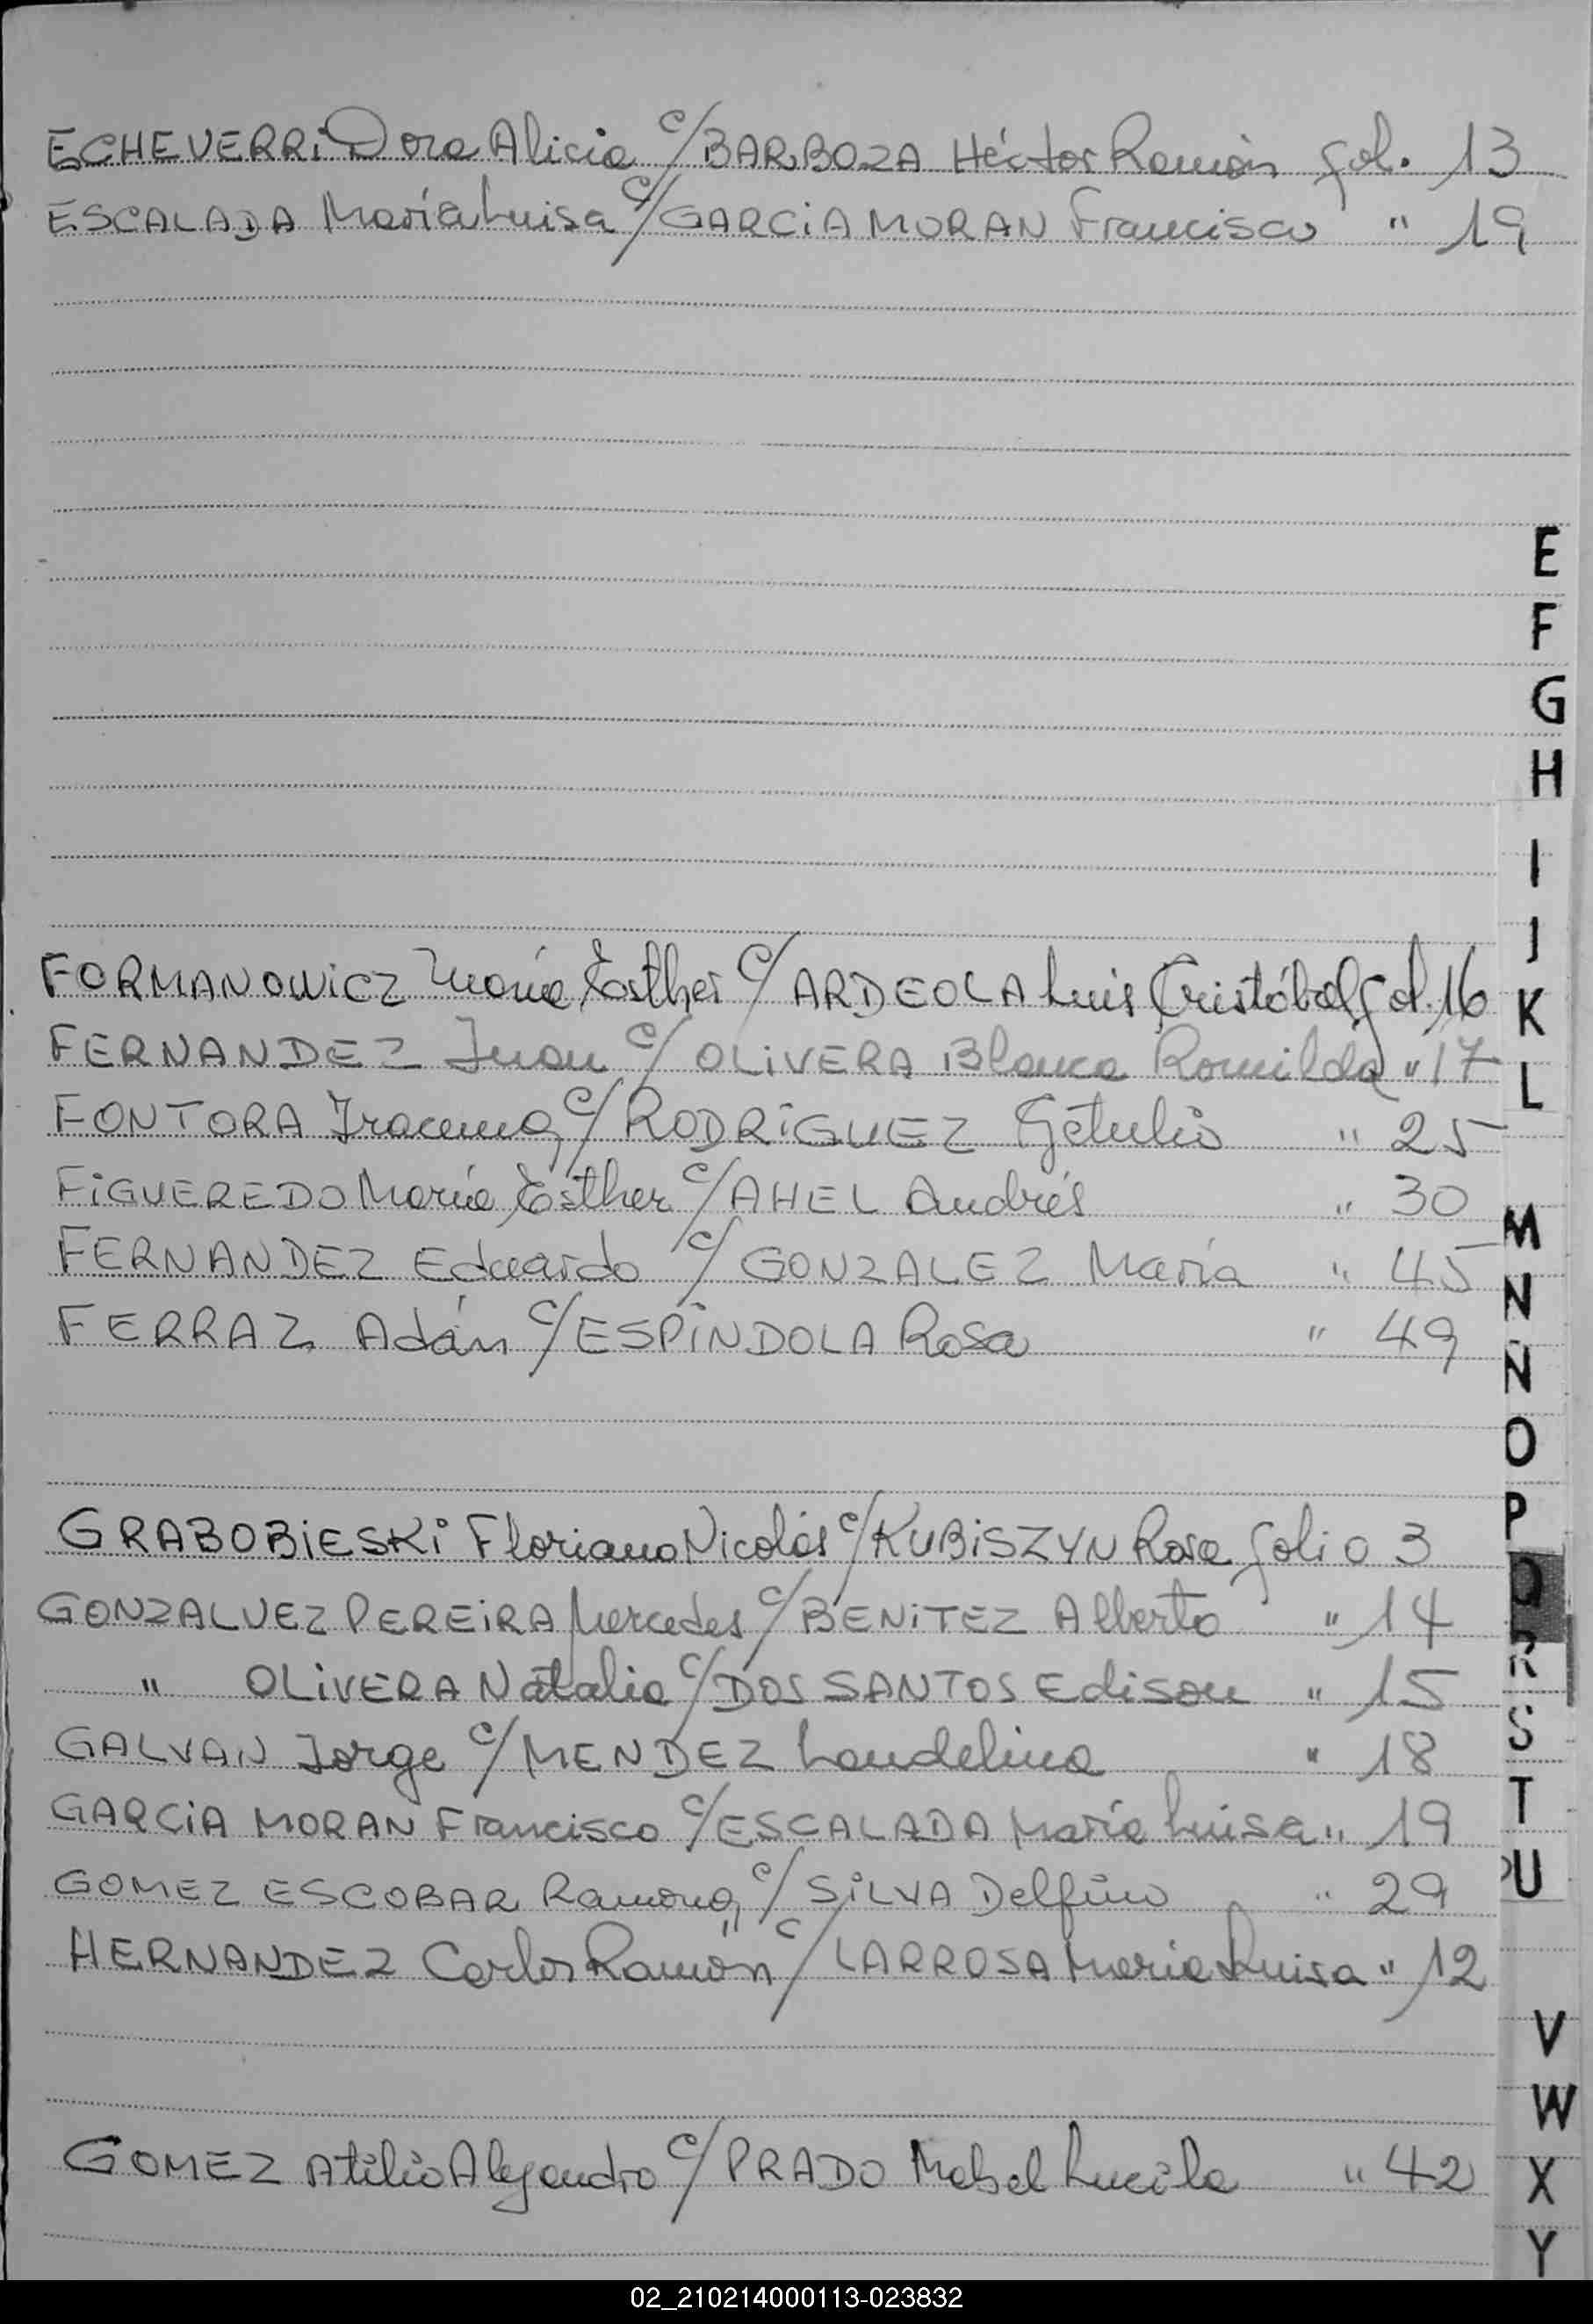 ECHEVERRi Dora Alicia c/ BARBOZA Héctor Ramón fol. 13
ESCALADA María Luisa c/ GARCiA MORAN Francisco " 19
FORMANOWiCZ María Esther c/ ARDEOLA Luis Cristóbal fol. 16
FERNANDEZ Juan c/ OLiVERA Blanca Romilda " 17
FONTORA Iracema c/ RODRiGUEZ Getulio " 25
FiGUEREDO María Esther c/ AHEL Andrés " 30
FERNANDEZ Eduardo c/ GONZALEZ María " 45
FERRAZ Adán c/ ESPiNDOLA Rosa " 49
GRABOBiESKi Floriano Nicolás c/ KUBiSZYN Rosa folio 3
GONZALVEZ PEREiRA Mercedes c/ BENiTEZ Alberto " 14
" OLiVERA Natalia c/ DOS SANTOS Edison " 15
GALVAN Jorge c/ MENDEZ Laudelina " 18
GARCiA MORAN Francisco c/ ESCALADA María Luisa " 19
GOMEZ ESCOBAR Ramona c/ SiLVA Delfino " 29
HERNANDEZ Carlos Ramón c/ LARROSA María Luisa " 12
GOMEZ Atilio Alejandro c/ PRADO Mabel Lucila " 42
E
F
G
H
I
J
K
L
M
N
Ñ
O
P
Q
R
S
T
U
V
W
X
Y
02_210214000113-023832